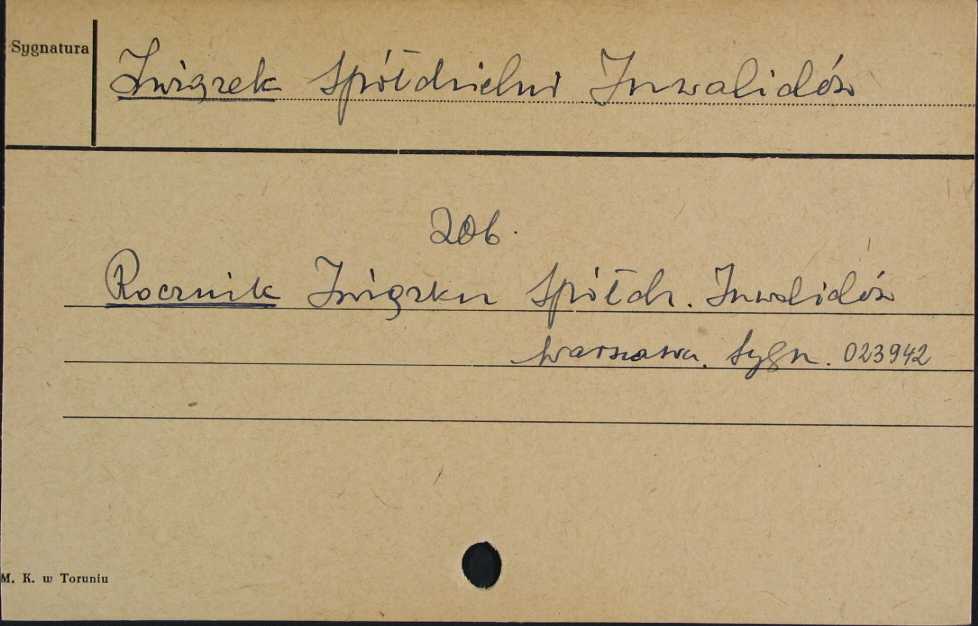 Sygnatura
Związek Spółdzielni Inwalidów
Zob.
Rocznik Związku Spółdz. Inwalidów
Warszawa. Sygn. 023942
M. K. w Toruniu